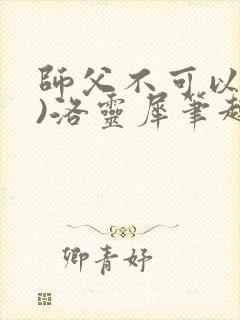 師父不可以
)洛靈犀筆趣
卿青妤